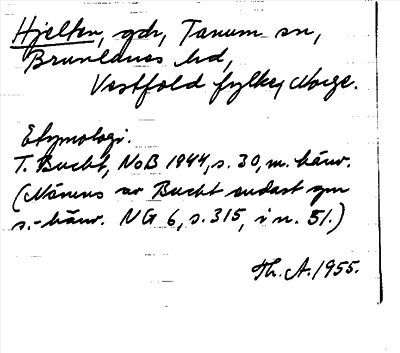 Hjelten, gdr, Tanum sn,
Brunlanes hd,
Vestfold fylke, Norge.
Etymologi.
T. Bucht, NoB 1944, s. 30, m. hänv.
(Nämnes av Bucht endast gm
s.-hänv. NG 6, s. 315, i n. 51.)
Th. A. 1955.